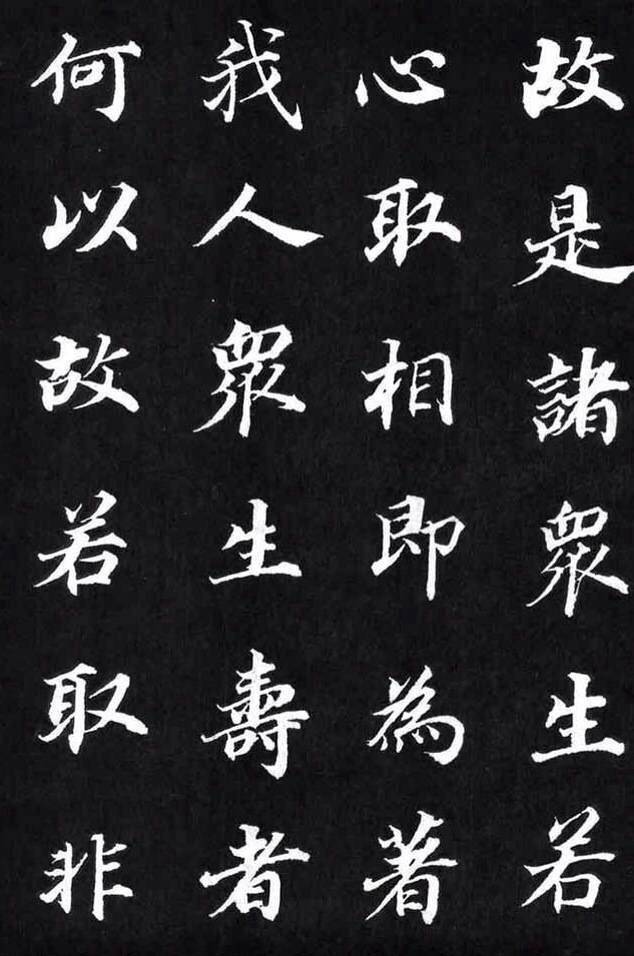 故是諸衆生若
心取相即為著
我人衆生壽者
何以故若取非